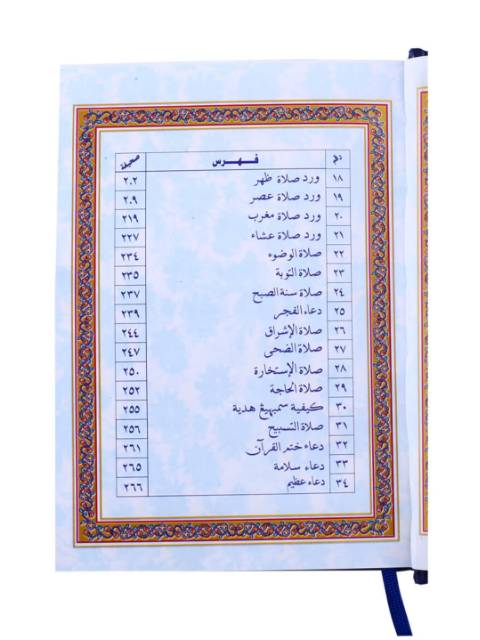 فهرس صحيفة
١٨ ورد صلاة ظهر ٢٠٢
١٩ ورد صلاة عصر ٢٠٩
٢٠ ورد صلاة مغرب ٢١٩
٢١ ورد صلاة عشاء ٢٢٧
٢٢ صلاة الوضوء ٢٣٤
٢٣ صلاة التوبة ٢٣٥
٢٤ صلاة سنة الصبح ٢٣٧
٢٥ دعاء الفجر ٢٣٩
٢٦ صلاة الإشراق ٢٤٤
٢٧ صلاة الضحى ٢٤٧
٢٨ صلاة الإستخارة ٢٥٠
٢٩ صلاة الحاجة ٢٥٢
٣٠ كيفية سمبهيڠ هدية ٢٥٥
٣١ صلاة التسبيح ٢٥٦
٣٢ دعاء ختم القرآن ٢٦١
٣٣ دعاء سلامة ٢٦٥
٣٤ دعاء عظيم ٢٦٦